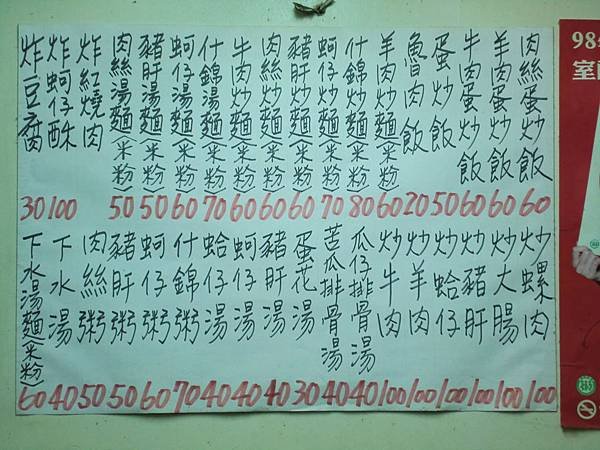 肉絲蛋炒飯 60
羊肉蛋炒飯 60
牛肉蛋炒飯 60
蛋炒飯 50
魯肉飯 20
羊肉炒麵(米粉) 60
什錦炒麵(米粉) 80
蚵仔炒麵(米粉) 70
豬肝炒麵(米粉) 60
肉絲炒麵(米粉) 60
牛肉炒麵(米粉) 60
什錦湯麵(米粉) 70
蚵仔湯麵(米粉) 60
豬肝湯麵(米粉) 50
肉絲湯麵(米粉) 50
炸紅燒肉
炸蚵仔酥 100
炸豆腐 30
炒螺肉 100
炒大腸 100
炒豬肝 100
炒蛤仔 100
炒羊肉 100
炒牛肉 100
瓜仔排骨湯 40
苦瓜排骨湯 40
蛋花湯 30
豬肝湯 40
蚵仔湯 40
蛤仔湯 40
什錦粥 70
蚵仔粥 60
豬肝粥 50
肉絲粥 50
下水湯 40
下水湯麵(米粉) 60
98
室